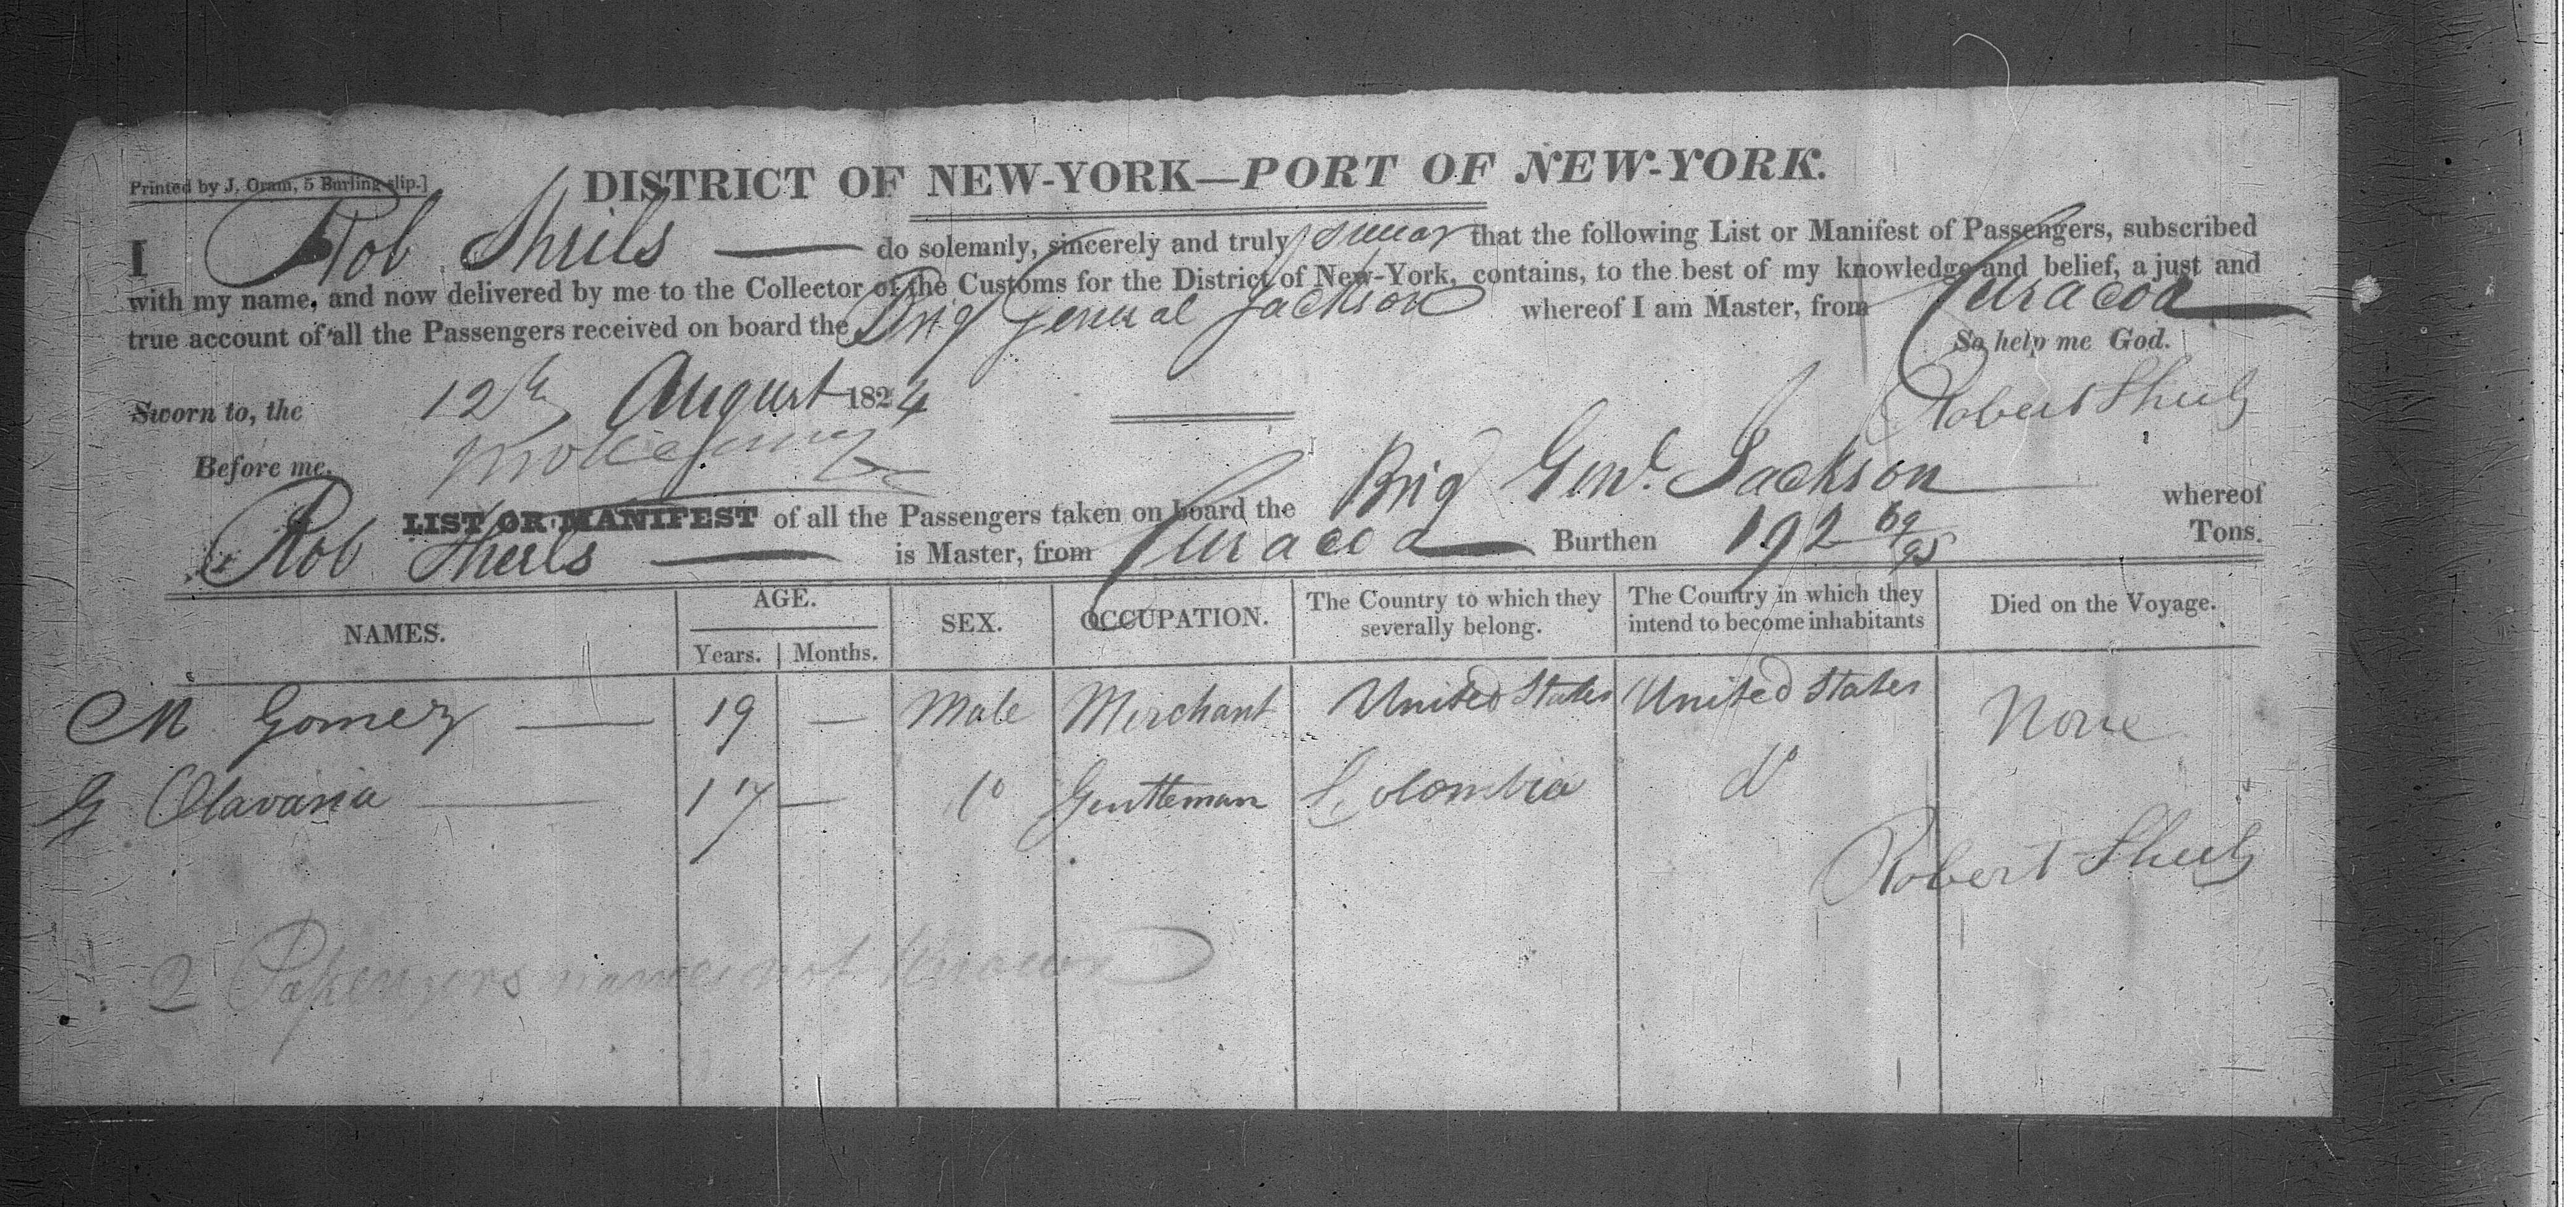 Printed by J. Oram, 5 Burling slip.]
DISTRICT OF NEW-YORK—PORT OF NEW-YORK.
I Rob Sheils — do solemnly, sincerely and truly swear that the following List or Manifest of Passengers, subscribed
with my name, and now delivered by me to the Collector of the Customs for the District of New-York, contains, to the best of my knowledge and belief, a just and
true account of all the Passengers received on board the Brig General Jackson whereof I am Master, from Curacoa
So help me God.
Sworn to, the 12th August 1824
Robert Sheils
Before me,
LIST OR MANIFEST of all the Passengers taken on board the Brig Genl. Jackson whereof
Rob Sheils — is Master, from Curacoa — Burthen 192 69/95 Tons.
NAMES. AGE. SEX. OCCUPATION. The Country to which they severally belong. The Country in which they intend to become inhabitants Died on the Voyage.
Years. Months.
M Gomez — 19 — Male Merchant United States United States None
G Olavaria — 17 — do Gentleman Colombia do
Robert Sheils
2 Passengers names not known